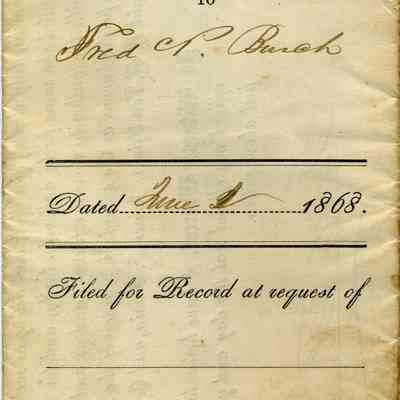 TO
Fred P. Busch
Dated June 2 1868.
Filed for Record at request of